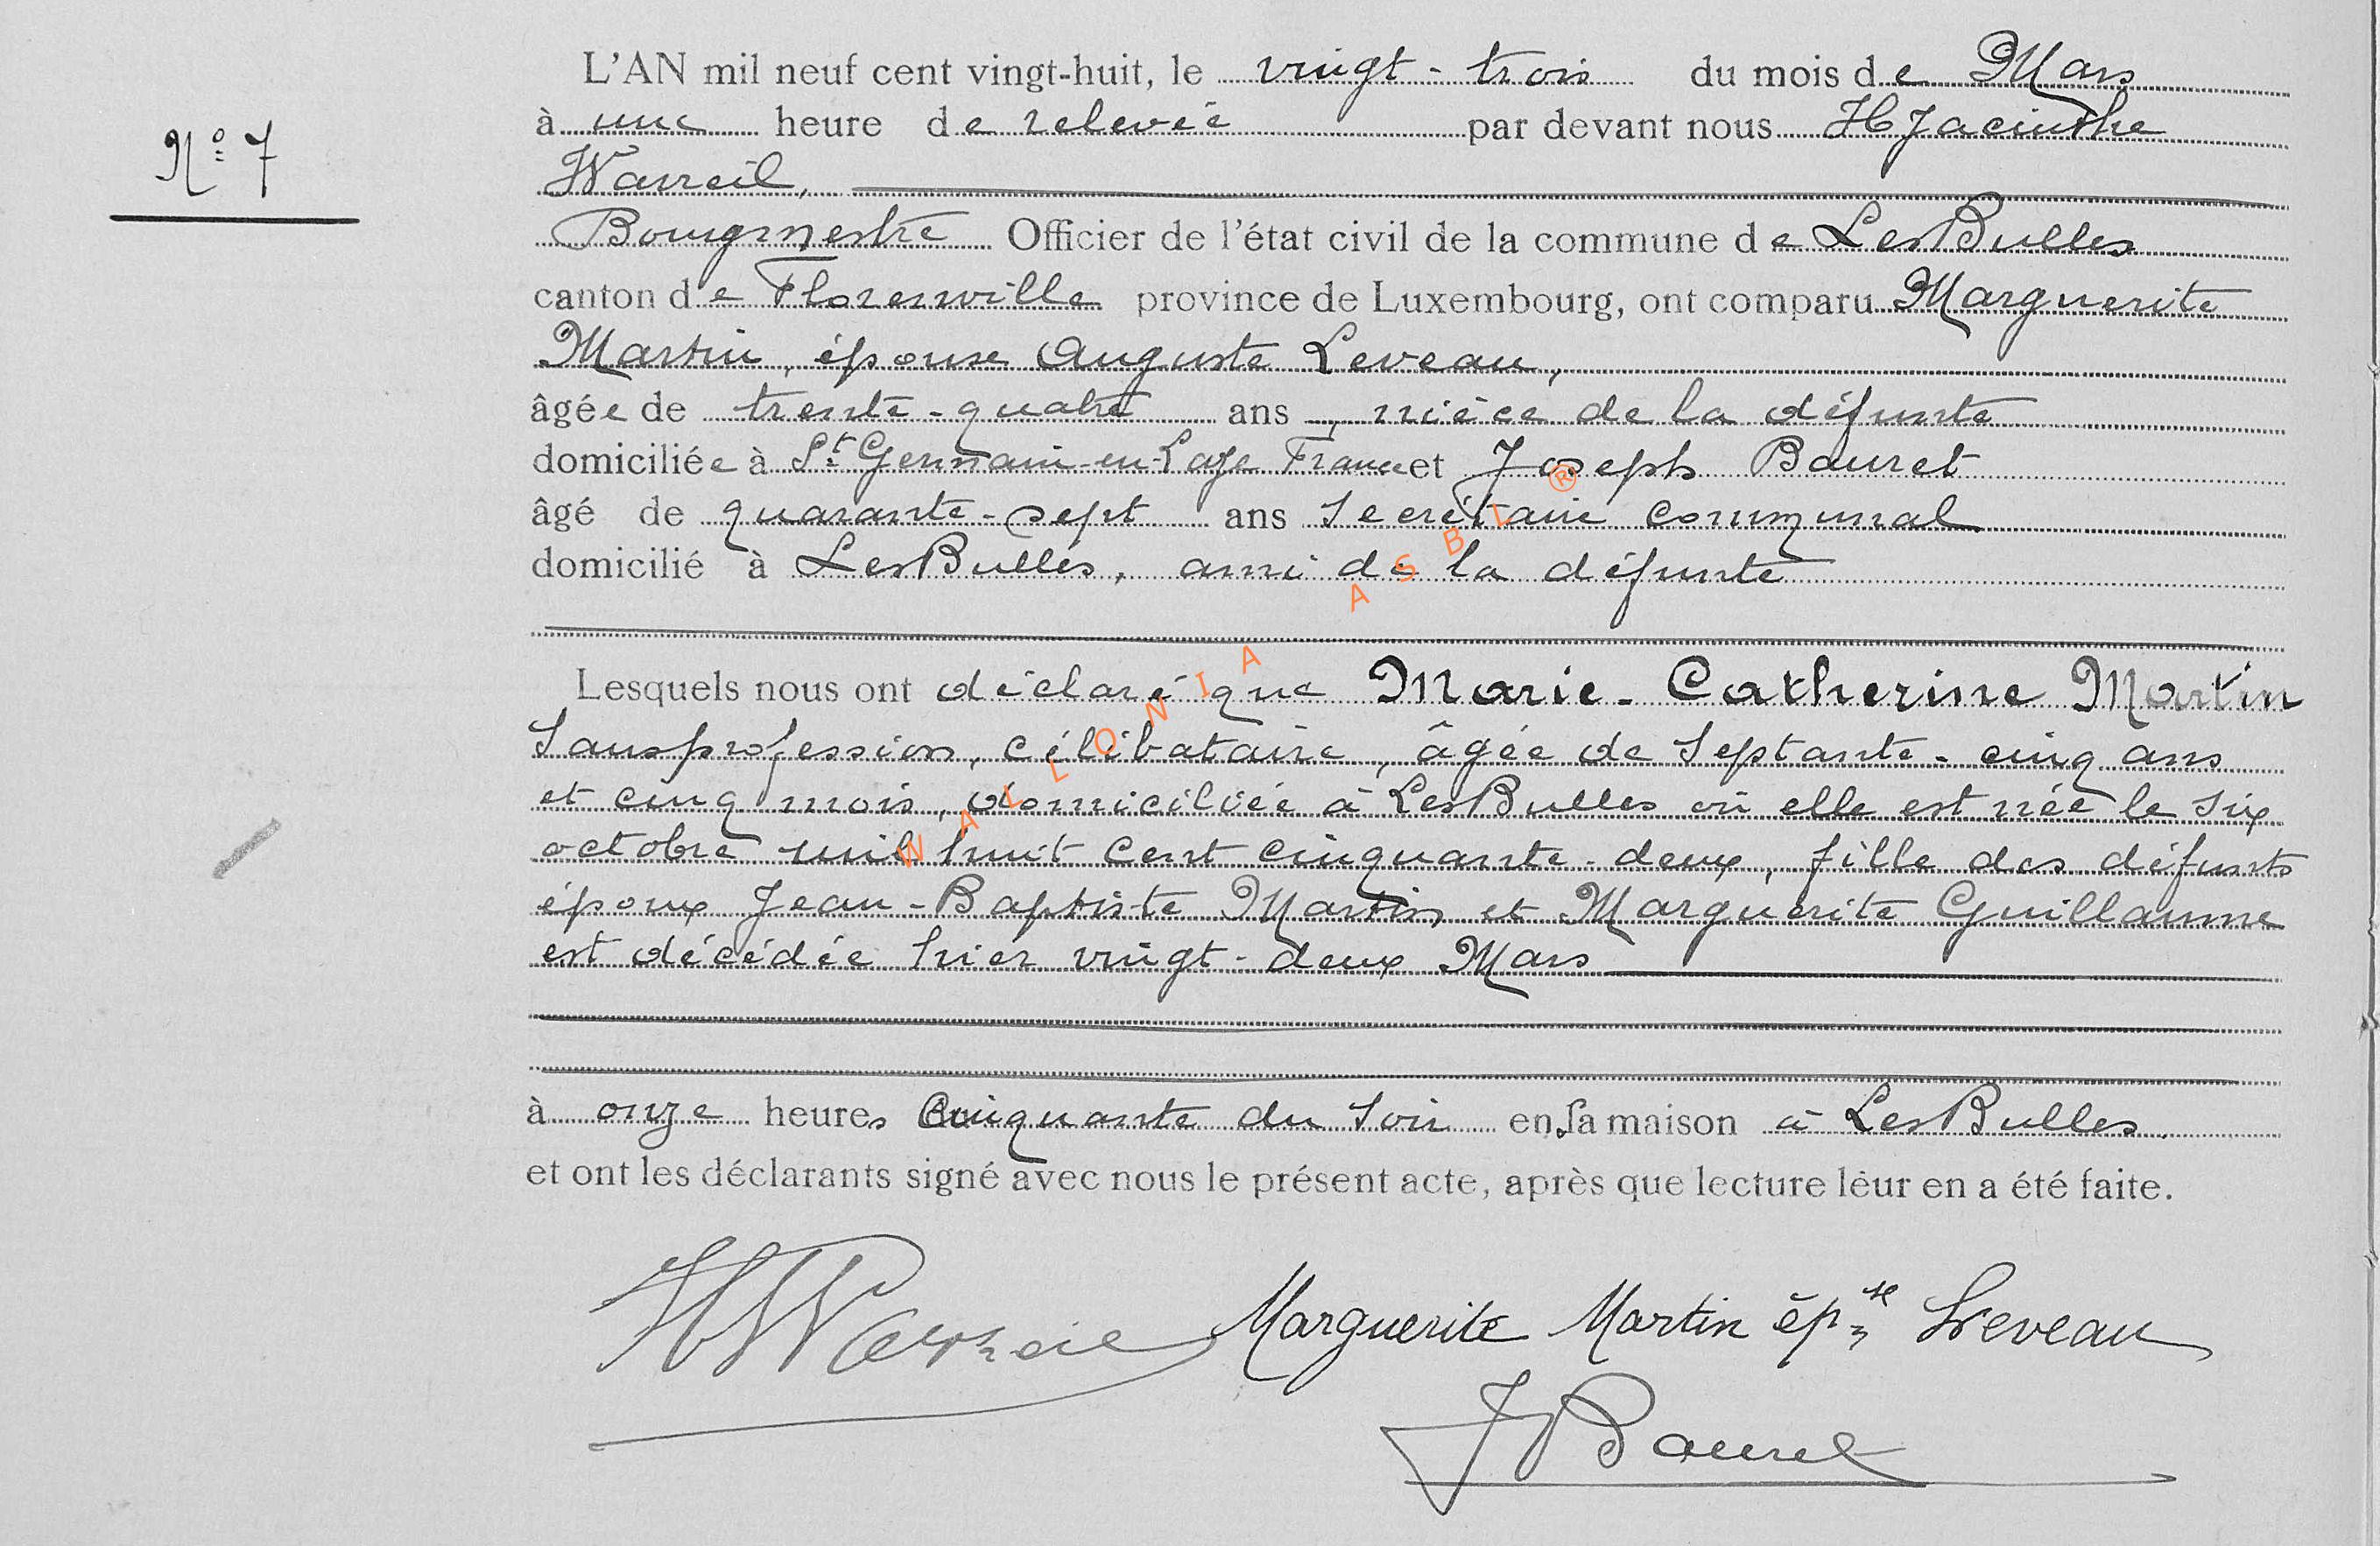 L'AN mil neuf cent vingt-huit, le vingt-trois du mois de Mars
N° 7
à une heure de relevée par devant nous Hyacinthe
Warreil,
Bourgmestre Officier de l'état civil de la commune de Les Bulles
canton de Florenville province de Luxembourg, ont comparu Marguerite
Martin, épouse Auguste Leveau,
âgée de trente-quatre ans, nièce de la défunte
domiciliée à St Germain-en-Laye France et Joseph Bauret
âgé de quarante-sept ans Secrétaire communal
domicilié à Les Bulles, ami de la défunte
Lesquels nous ont déclaré que Marie-Catherine Martin
Sans profession, célibataire, âgée de Septante-cinq ans
et cinq mois, domiciliée à Les Bulles où elle est née le Six
octobre mil huit cent cinquante-deux, fille des défunts
époux Jean-Baptiste Martin et Marguerite Guillaume
est décédée hier vingt-deux Mars
à onze heures Cinquante du Soir en Sa maison à Les Bulles.
et ont les déclarants signé avec nous le présent acte, après que lecture leur en a été faite.
HWarreil Marguerite Martin épse Leveau
JBauret
WALLONIA ASBL ®